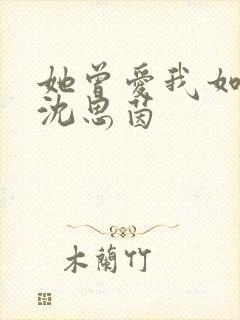 她曾愛我如
沈思茵
木蘭竹